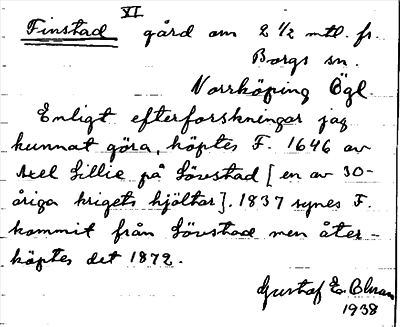 VI
Finstad gård om 2 1/2 mtl. fr.
Borgs sn.
Norrköping Ögl.
Enligt efterforskningar jag
kunnat göra, köptes F. 1646 av
Axel Lillie på Lövstad [en av 30-
åriga krigets hjältar]. 1837 synes F.
kommit från Lövstad men åter-
köptes det 1872.
Gustaf E.
1938